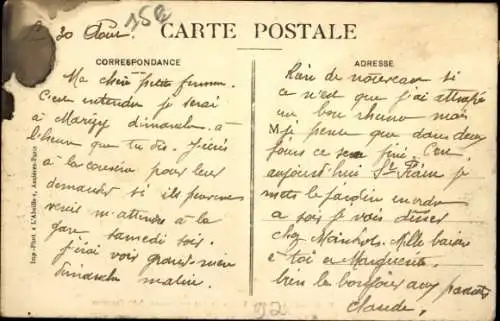 30 Août
15€
CARTE POSTALE
CORRESPONDANCE
Ma chère petite femme.
C'est entendu je serai
à Marizy dimanche à
l'heure que tu dis. J'écris
à la cousine pour leur
demander si ils peuvent
venir m'attendre à la
gare samedi soir.
J'irai voir grand-mère
dimanche matin.
ADRESSE
Rien de nouveau si
ce n'est que j'ai attrapé
un bon rhume mais
M je pense que dans deux
jours ce sera fini. C'est
aujourd'hui St je
mets le jardin en ordre
ce soir je vais dîner
chez Mille baisers
à toi a Marguerite
bien le bonjour aux parents
Claude.
Imp.-Phot. « L'Abeille », Asnières-Paris
92